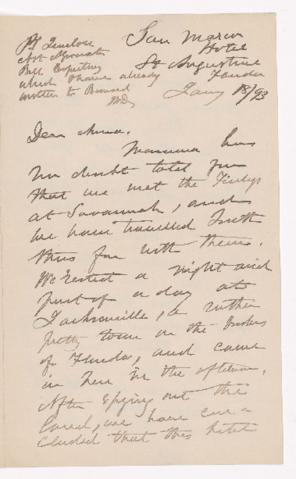 San Marco
Hotel
St Augustine
Florida
Jany 18/93
which I have already
written to
Dear Anna,
Mamma has
no doubt told you
that we met the
at Savannah, and
we have travelled
thus far with them.
We rested a night and
part of a day at
Jacksonville, a rather
pretty town on the
of Florida, and came
in here in the afternoon.
After spying out the
land, we have con-
cluded that this hotel